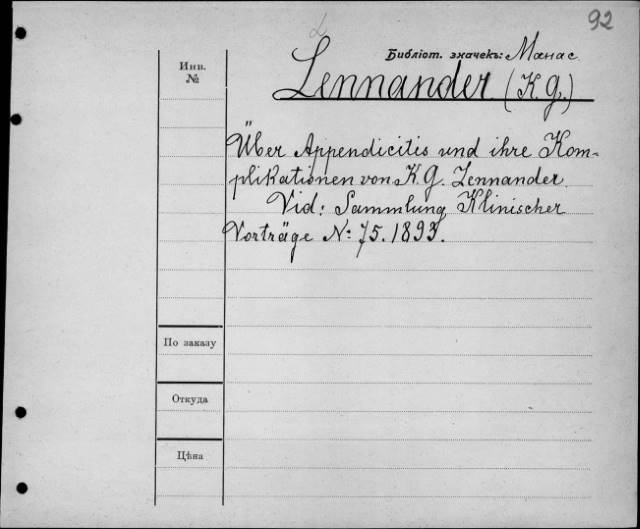 92
Библіот. значекъ: Манас.
Инв.
№
Lennander (K. G.)
Über Appendicitis und ihre Kom-
plikationen von K. G. Lennander.
Vid: Sammlung Klinischer
Vorträge №: 75. 1893.
По заказу
Откуда
Цѣна